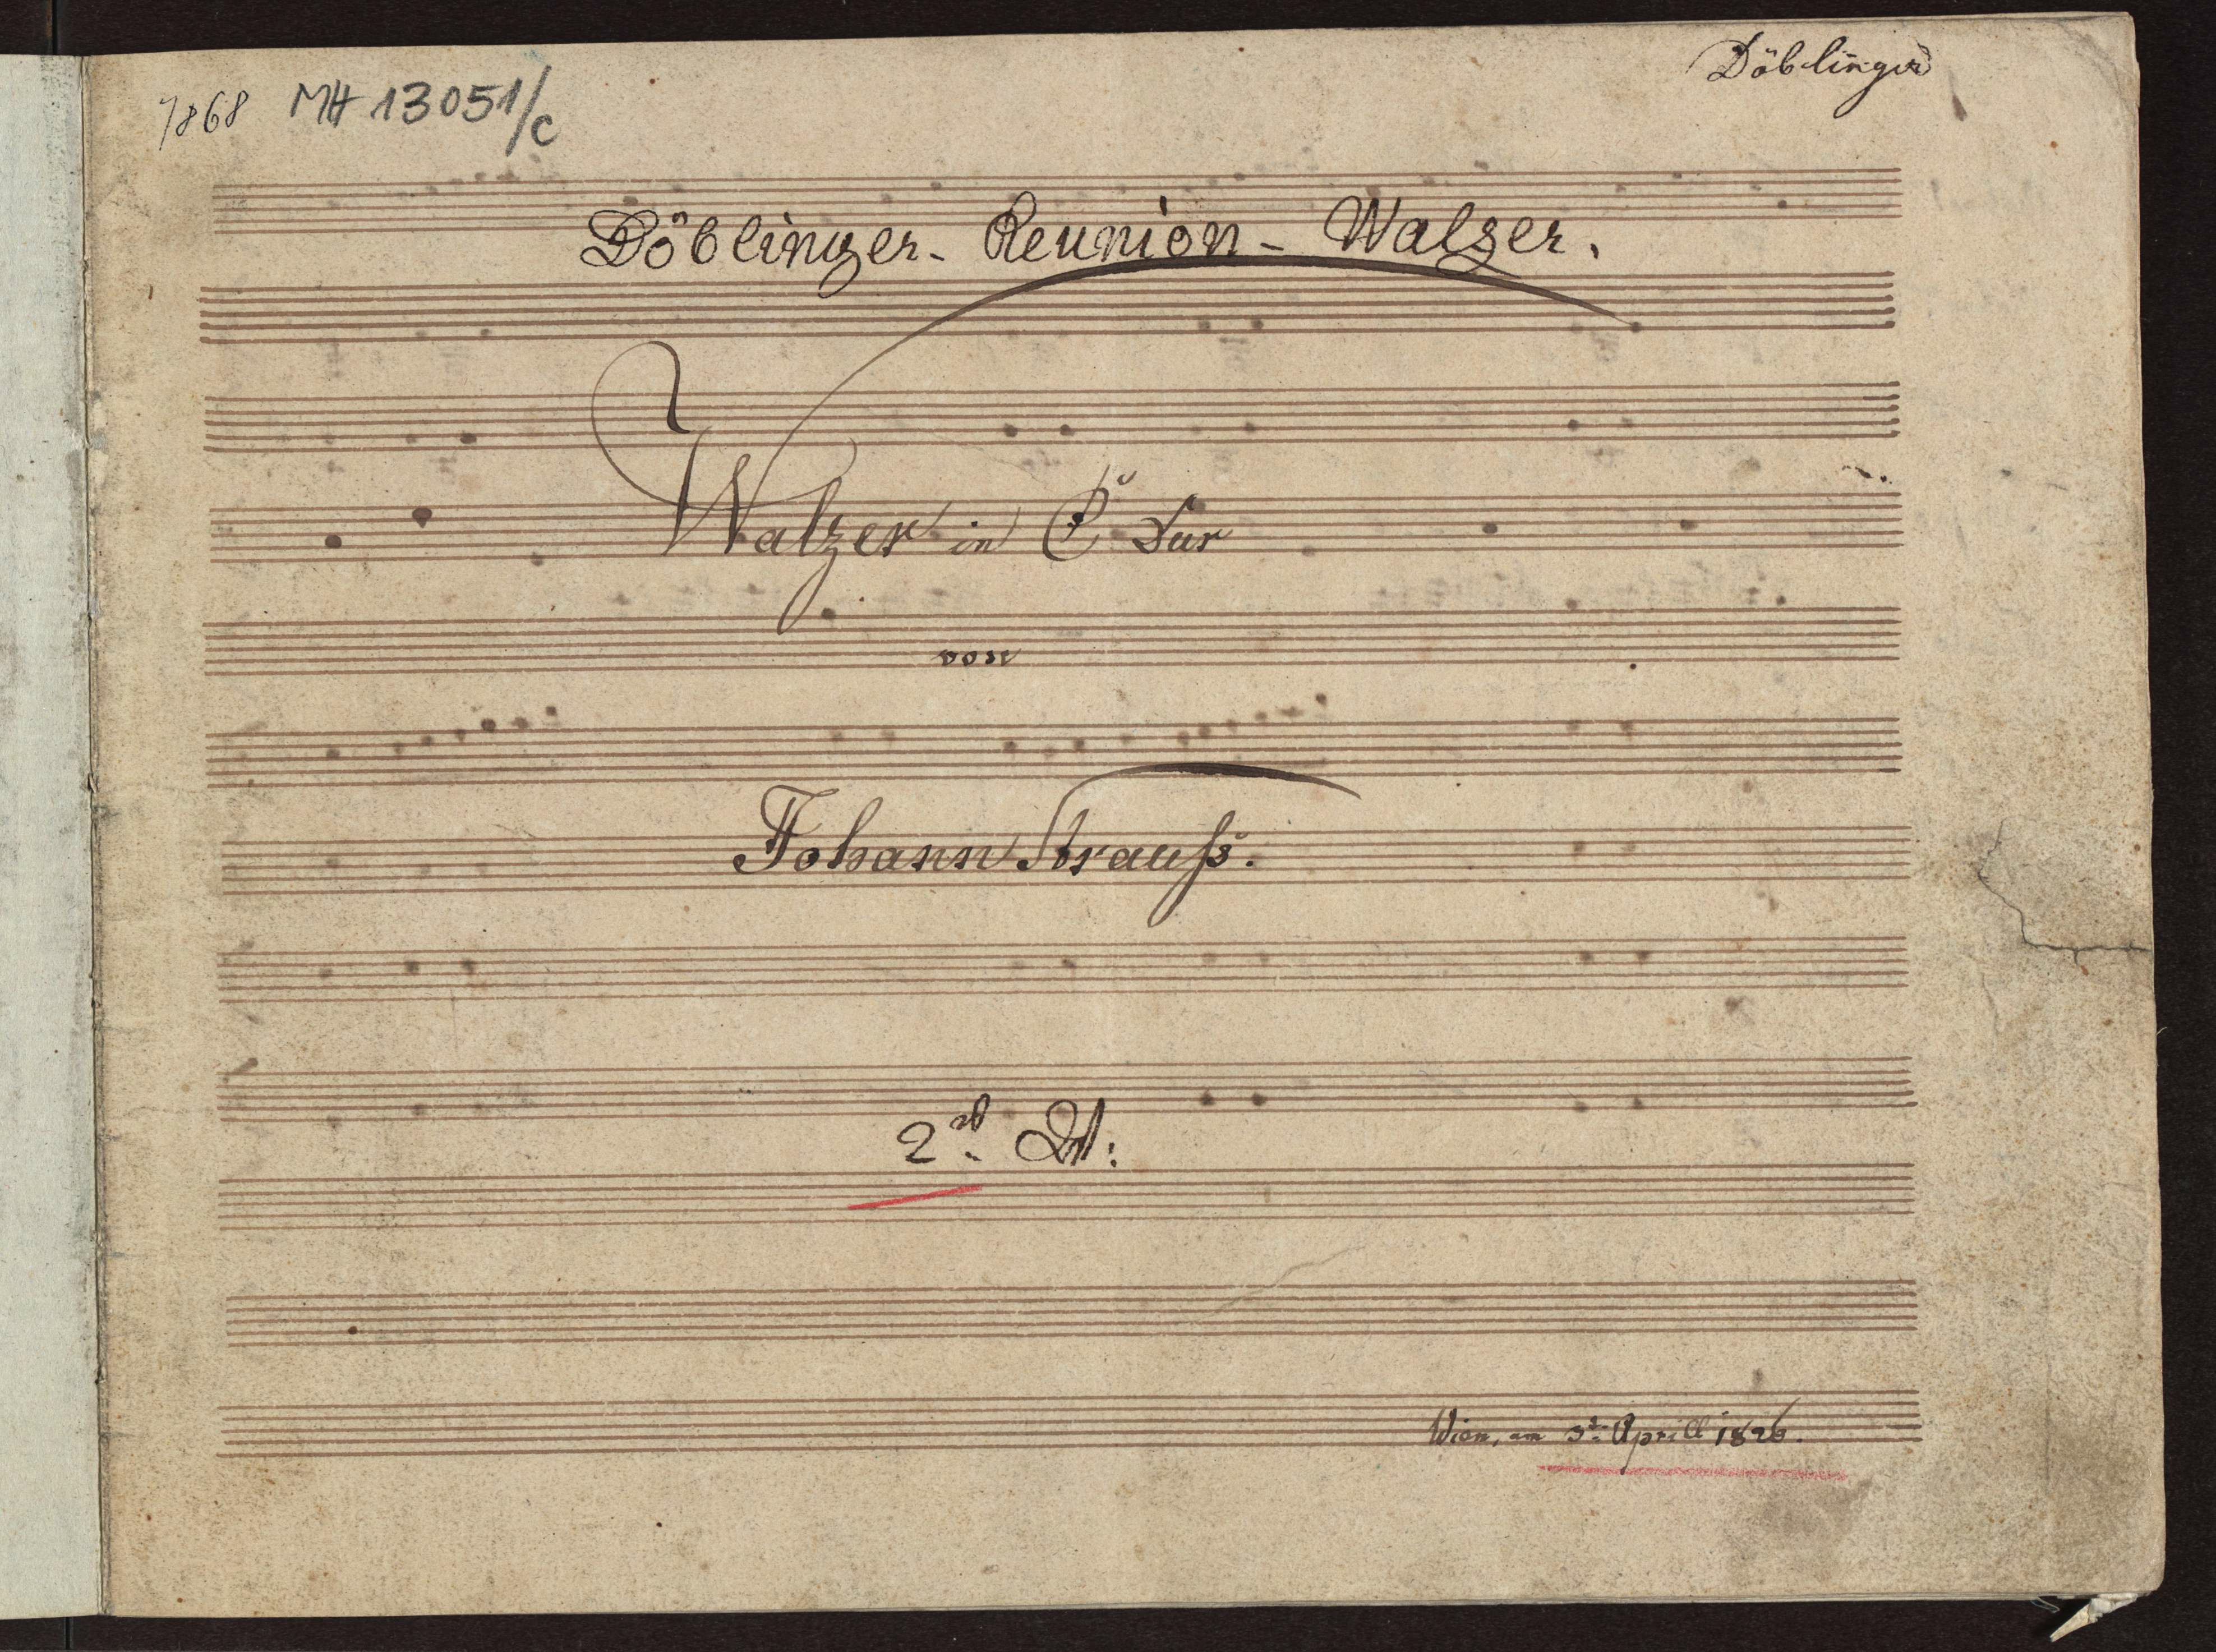 Döblinger
7868 MH 13051/c
Döblinger - Reunion - Walzer.
Walzer in C Dur
von
Johann Strauß.
Wien, am 3t: Aprill 1826.